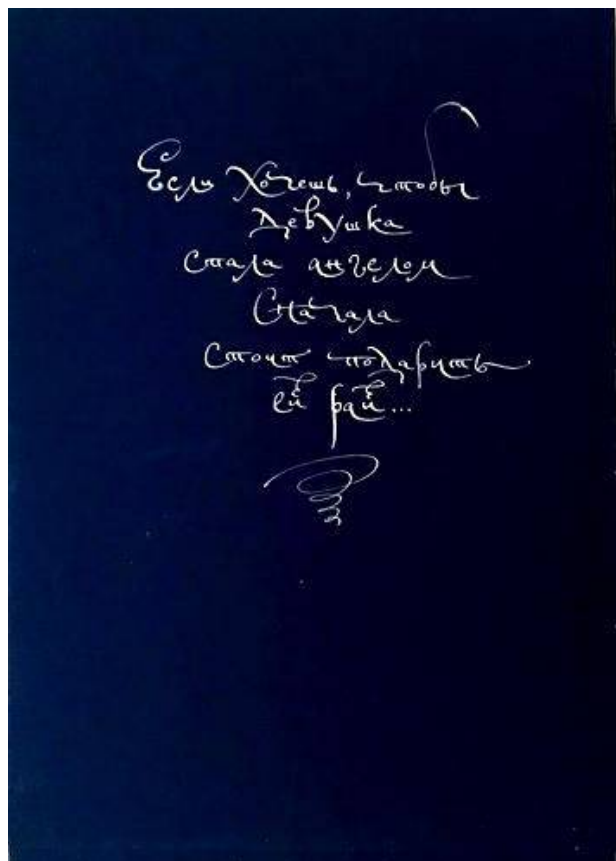 Если Хочешь, чтобы
Девушка
стала ангелом
Сначала
Стоит подарить
ей рай...